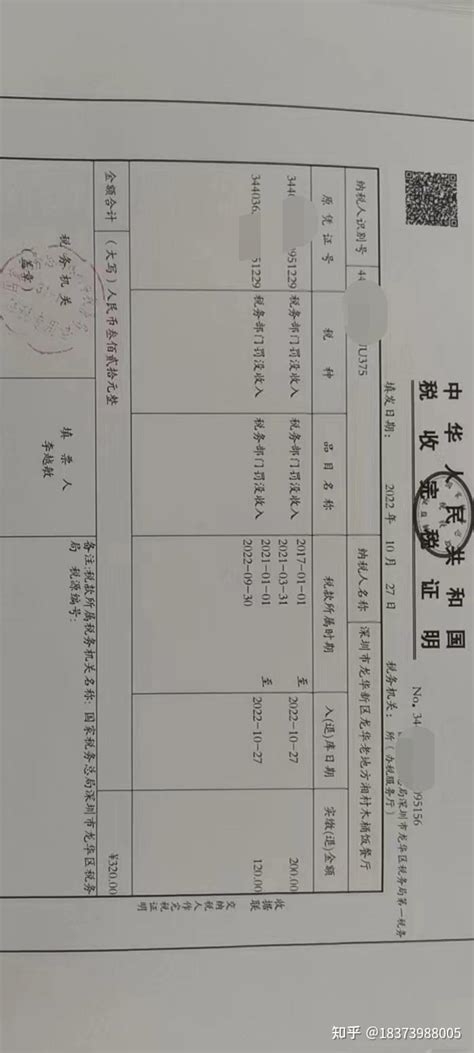 中华人民共和国
税收完税证明
No. 34 095156
填发日期： 2022 年 10 月 27 日 税务机关： 局深圳市龙华区税务局第一税务
所（办税服务厅）
纳税人识别号 44 U375 纳税人名称 深圳市龙华新区龙华老地方湘村木桶饭餐厅
原凭证号 税种 品目名称 税款所属时期 入(退)库日期 实缴(退)金额
344 951229 税务部门罚没收入 税务部门罚没收入 2017-01-01 至 2021-03-31 2022-10-27 200.00
344036 51229 税务部门罚没收入 税务部门罚没收入 2021-01-01 至 2022-09-30 2022-10-27 120.00
金额合计 （大写）人民币叁佰贰拾元整 ¥320.00
税务机关
（盖章）
填票人
李越敏
备注:税款所属税务机关名称: 国家税务总局深圳市龙华区税务
局 税源编号:
收据联
交纳税人作完税证
知乎 @18373988005